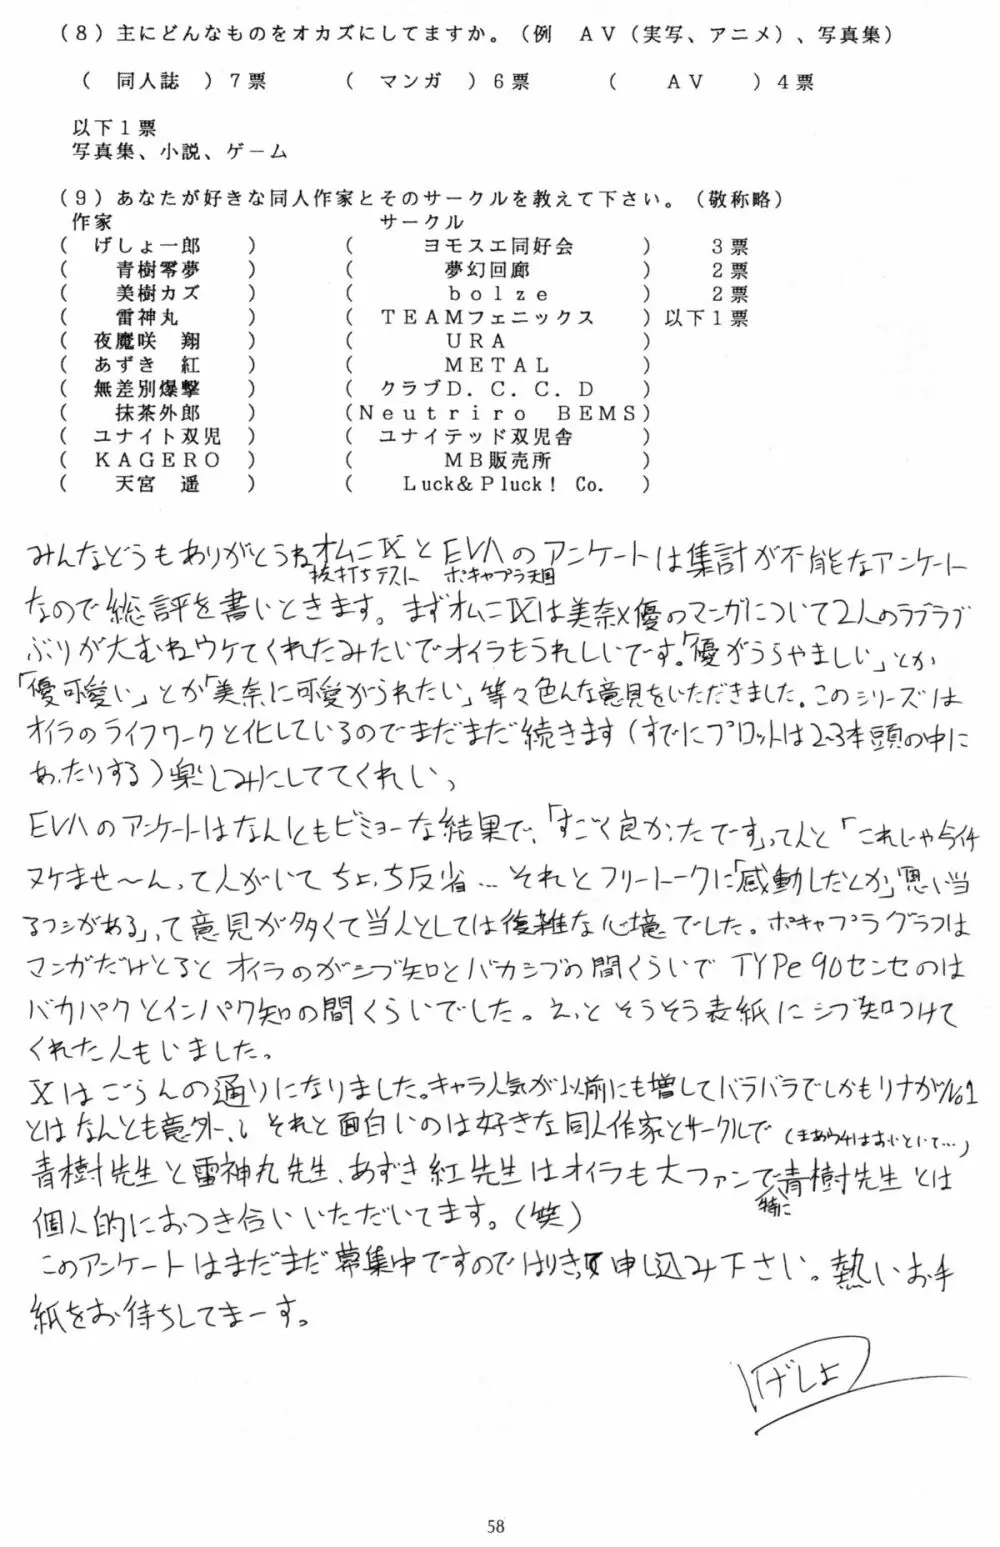 (8)主にどんなものをオカズにしてますか。(例 AV(実写、アニメ)、写真集)
( 同人誌 )7票 ( マンガ )6票 ( AV )4票
以下1票
写真集、小説、ゲーム
(9)あなたが好きな同人作家とそのサークルを教えて下さい。(敬称略)
作家 サークル
( げしょ一郎 ) ( ヨモスエ同好会 ) 3票
( 青樹零夢 ) ( 夢幻回廊 ) 2票
( 美樹カズ ) ( bolze ) 2票
( 雷神丸 ) ( TEAMフェニックス )以下1票
( 夜魔咲 翔 ) ( URA )
( あずき 紅 ) ( METAL )
( 無差別爆撃 ) ( クラブD.C.C.D )
( 抹茶外郎 ) (Neutriro BEMS)
( ユナイト双児 ) ( ユナイテッド双児舎 )
( KAGERO ) ( MB販売所 )
( 天宮 遥 ) ( Luck&Pluck! Co. )
みんなどうもありがとうね オムニⅨとEVAのアンケートは集計が不能なアンケート
抜打ちテスト ボキャプラ天国
なので総評を書いときます。まずオムニⅨは美奈×優のマンガについて2人のラブラブ
ぶりが大むねウケてくれたみたいでオイラもうれしいです。「優がうらやましい」とか
「優可愛い」とか「美奈に可愛がられたい」等々色んな意見をいただきました。このシリーズは
オイラのライフワークと化しているのでまだまだ続きます(すでにプロットは2~3本頭の中に
あったりする)楽しみにしててくれいっ
EVAのアンケートはなんともビミョーな結果で、「すごく良かったです」って人と「これじゃ
ヌケませ〜んって人がいてちょっち反省…それとフリートークに「感動したとか」「思い当
るフシがある」って意見が多くて当人としては復雑な心境でした。ボキャプラグラフは
マンガだけとるとオイラのがシブ知とバカシブの間くらいで TYPe90センセのは
バカパクとインパク知の間くらいでした。えっとそうそう表紙にシブ知つけて
くれた人もいました。
Ⅹはごらんの通りになりました。キャラ人気が以前にも増してバラバラでしかもリナがNo1
とはなんとも意外、、それと面白いのは好きな同人作家とサークルで(まあウチはおいといて…)
青樹先生と雷神丸先生、あずき紅先生はオイラも大ファンで青樹先生とは
特に
個人的におつき合いいただいてます。(笑)
このアンケートはまだまだ募集中ですのではりきって申し込み下さい。熱いお手
紙をお待ちしてまーす。
げしょ
58